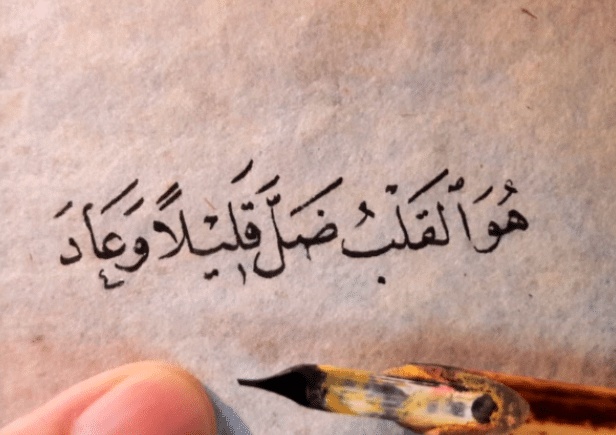 هُوَ ٱلْقَلْبُ ضَلَّ قَلِيْلًا وَعَادَ